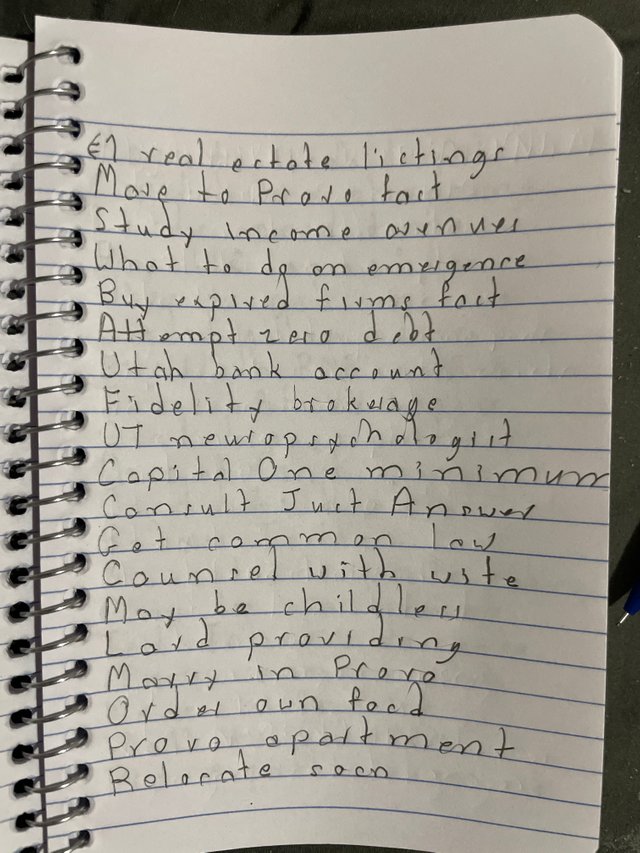 €1 real estate listings
Move to Provo fast
Study income avenues
What to do on emergence
Buy expired firms fast
Attempt zero debt
Utah bank account
Fidelity brokerage
UT neuropsychologist
Capital One minimum
Consult Just Answer
Get common law
Counsel with wife
May be childless
Lord providing
Marry in Provo
Order own food
Provo apartment
Relocate soon